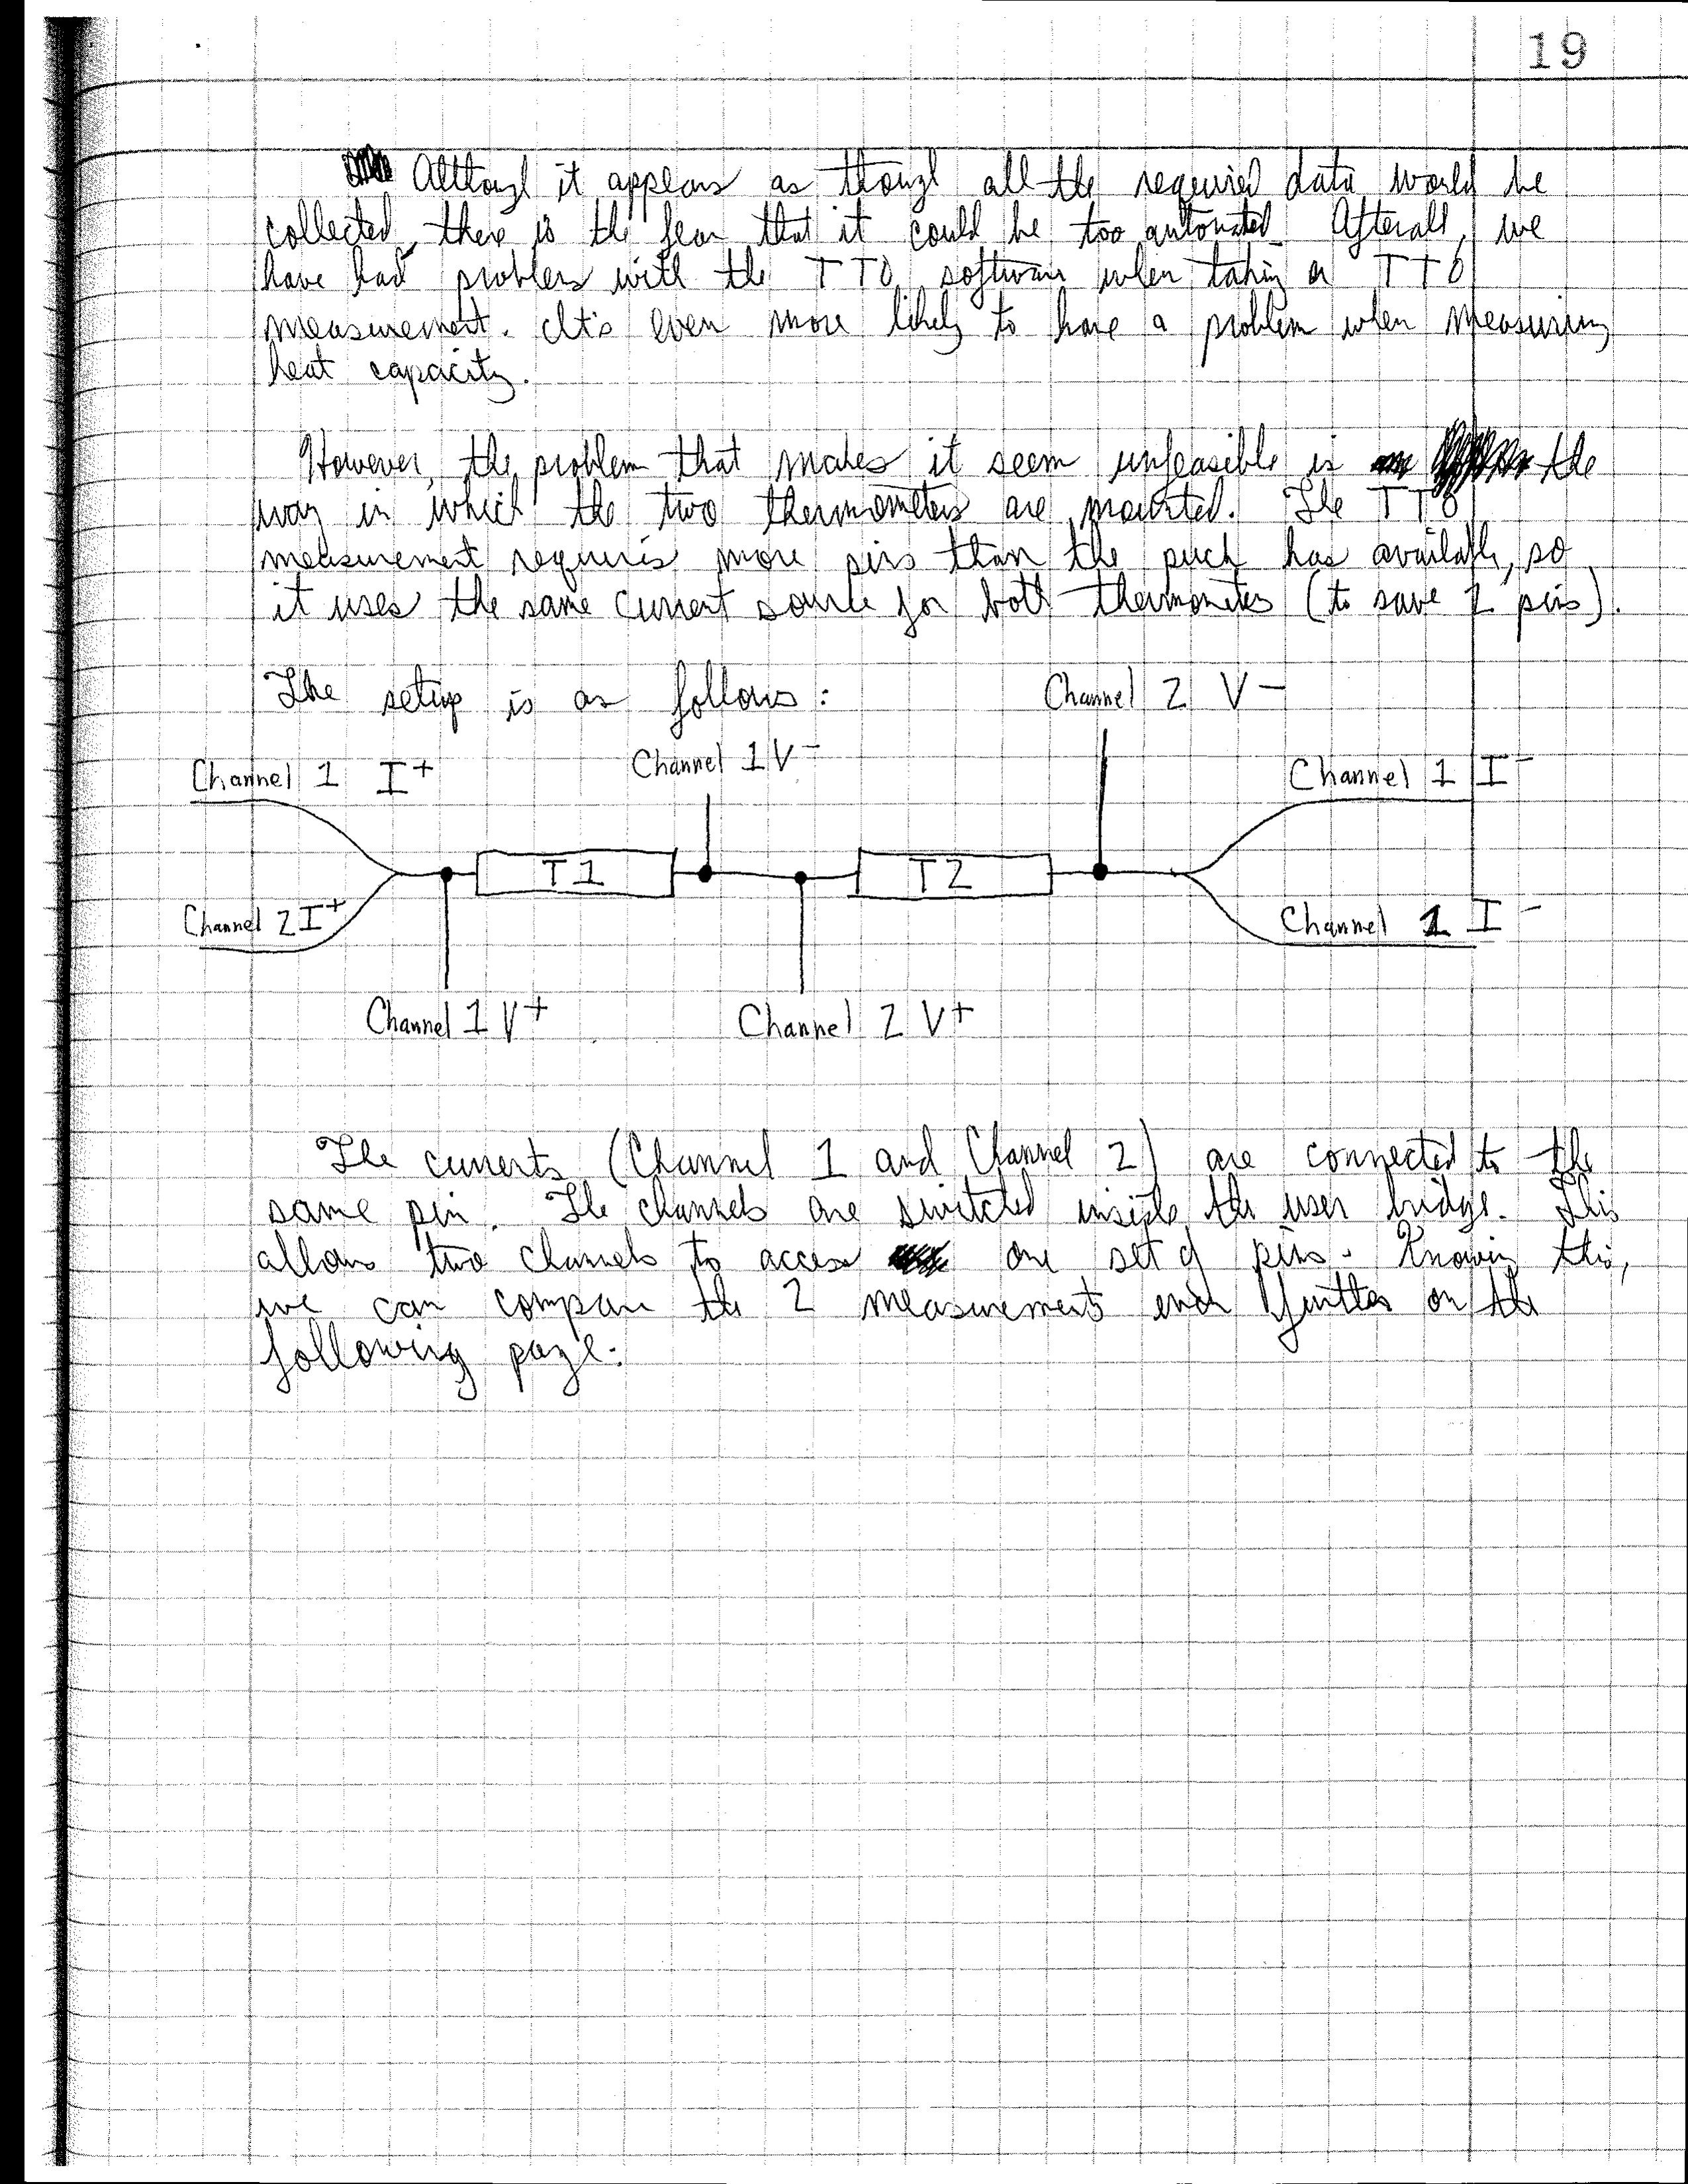 19
Although it appears as though all the required data would be
collected, there is the fear that it could be too automated. Afterall, we
have had problems with the TTO software when taking a TTO
measurement. It's even more likely to have a problem when measuring
heat capacity.
However, the problem that makes it seem unfeasible is the
way in which the two thermometers are mounted. The TTO
measurement requires more pins than the puck has available, so
it uses the same current source for both thermometers (to save 2 pins).
The setup is as follows:
Channel 2 V-
Channel 1 V-
Channel 1 I+
Channel 1 I-
T1
T2
Channel 2 I+
Channel 1 I-
Channel 1 V+
Channel 2 V+
The currents (Channel 1 and Channel 2) are connected to the
same pin. The channels are switched inside the user bridge. This
allows two channels to access one set of pins. Knowing this,
we can compare the 2 measurements even further on the
following page: